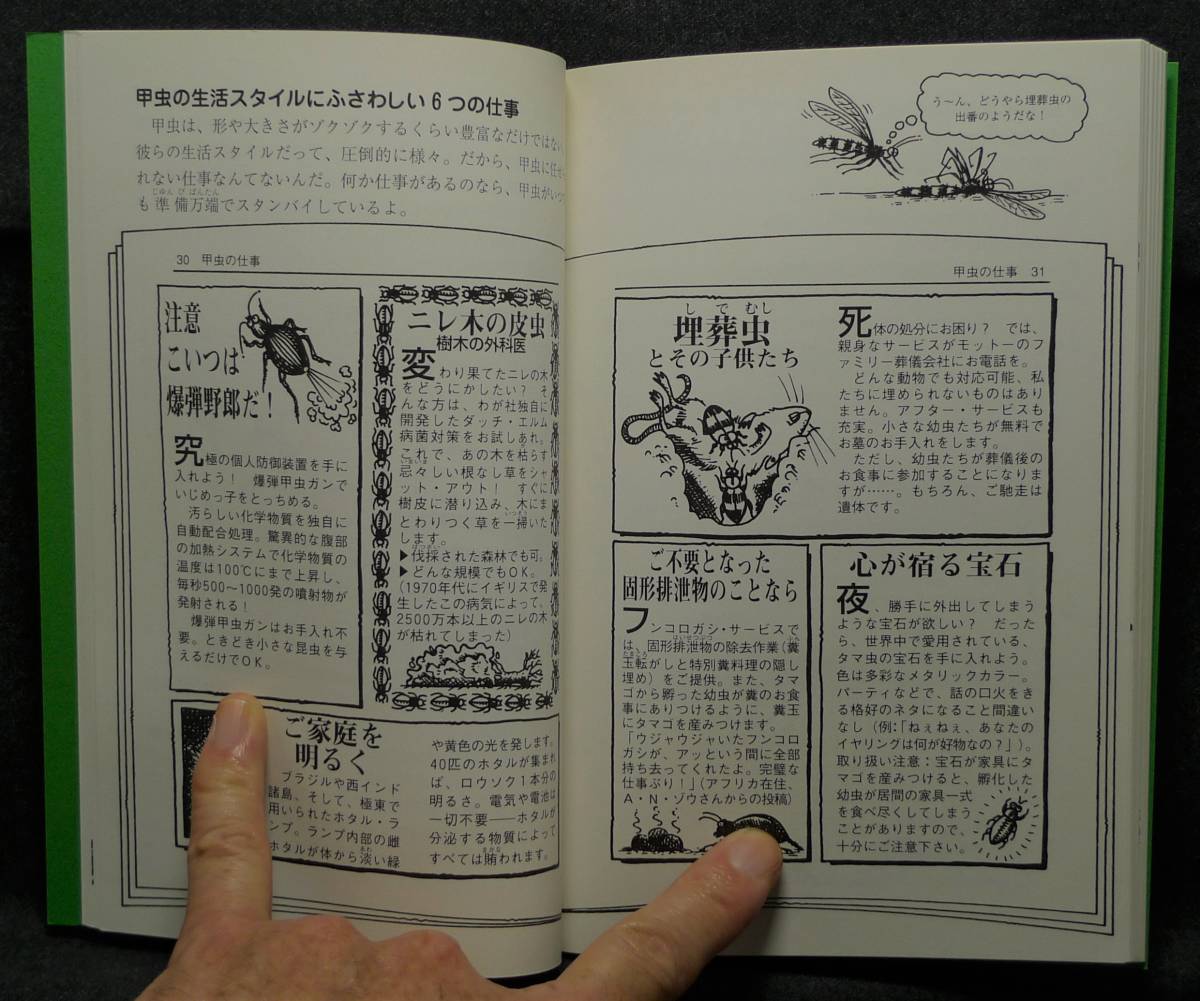 甲虫の生活スタイルにふさわしい6つの仕事
甲虫は、形や大きさがゾクゾクするくらい豊富なだけではない。
彼らの生活スタイルだって、圧倒的に様々。だから、甲虫に任せ
れない仕事なんてないんだ。何か仕事があるのなら、甲虫がいつ
も準備万端でスタンバイしているよ。
じゅんびばんたん
30 甲虫の仕事
注意
こいつは
爆弾野郎だ!
究極の個人防御装置を手に
入れよう! 爆弾甲虫ガンで
いじめっ子をとっちめる。
汚らしい化学物質を独自に
自動配合処理。驚異的な腹部
の加熱システムで化学物質の
温度は100℃にまで上昇し、
毎秒500〜1000発の噴射物が
発射される!
爆弾甲虫ガンはお手入れ不
要。ときどき小さな昆虫を与
えるだけでOK。
ニレ木の皮虫
樹木の外科医
変わり果てたニレの木
をどうにかしたい? そ
んな方は、わが社独自に
開発したダッチ・エルム
病菌対策をお試しあれ。
これで、あの木を枯らす
忌々しい根なし草をシャ
いまいま
ット・アウト! すぐに
樹皮に潜り込み、木にま
とわりつく草を一掃いた
いっそう
します。
▶伐採された森林でも可。
ばっさい
▶どんな規模でもOK。
(1970年代にイギリスで発
生したこの病気によって、
2500万本以上のニレの木
が枯れてしまった)
ご家庭を
明るく
ブラジルや西インド
諸島、そして、極東で
用いられたホタル・ラ
ンプ。ランプ内部の雌
ホタルが体から淡い緑
あわ
や黄色の光を発します。
40匹のホタルが集まれ
ば、ロウソク1本分の
明るさ。電気や電池は
一切不要——ホタルが
分泌する物質によって
すべては賄われます。
まかな
う〜ん、どうやら埋葬虫の
出番のようだな!
甲虫の仕事 31
しでむし
埋葬虫
とその子供たち
死体の処分にお困り? では、
親身なサービスがモットーのフ
ァミリー葬儀会社にお電話を。
どんな動物でも対応可能、私
たちに埋められないものはあり
ません。アフター・サービスも
充実。小さな幼虫たちが無料で
お墓のお手入れをします。
ただし、幼虫たちが葬儀後の
お食事に参加することになりま
すが……。もちろん、ご馳走は
遺体です。
ご不要となった
固形排泄物のことなら
フンコロガシ・サービスで
は、固形排泄物の除去作業(糞
はいせつぶつ
玉転がしと特別糞料理の隠し
埋め)をご提供。また、タマ
ゴから孵った幼虫が糞のお食
事にありつけるように、糞玉
にタマゴを産みつけます。
「ウジャウジャいたフンコロ
ガシが、アッという間に全部
持ち去ってくれたよ。完璧な
仕事ぶり!」(アフリカ在住、
A・N・ゾウさんからの投稿)
心が宿る宝石
夜、勝手に外出してしまう
ような宝石が欲しい? だった
ら、世界中で愛用されている、
タマ虫の宝石を手に入れよう。
色は多彩なメタリックカラー。
パーティなどで、話の口火をき
る格好のネタになること間違い
なし(例:「ねぇねぇ、あなたの
イヤリングは何が好物なの?」)。
取り扱い注意:宝石が家具にタ
マゴを産みつけると、孵化した
幼虫が居間の家具一式
を食べ尽くしてしまう
ことがありますので、
十分にご注意下さい。